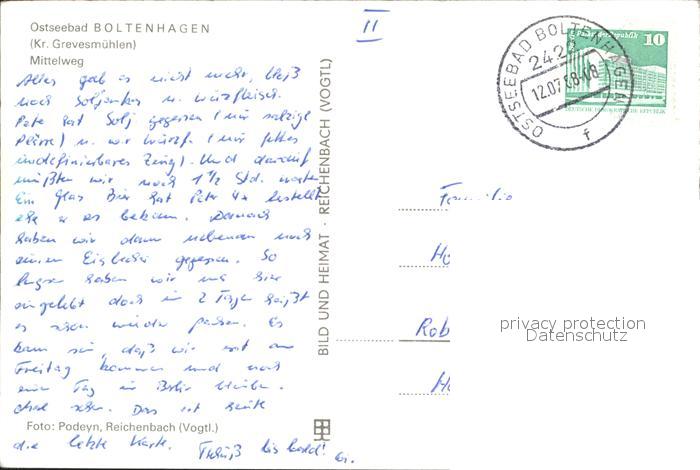 Ostseebad BOLTENHAGEN
(Kr. Grevesmühlen)
Mittelweg
II
Alles gab es nicht mehr, bloß
noch Soljanka u. Würzfleisch.
Pete hat Solj gegessen (nur salzige
) u. wir Würzf. (nur fettes
undefinierbares Zeug). Und darauf
mußten wir noch 1 1/2 Std. warten
Ein Glas Bier hat Peter 4x bestellt
ehe er es bekam. Danach
haben wir dann nebenan noch
einen Eisbecher gegessen. So
haben wir uns hier
eingelebt doch in 2 Tagen heißt
es schon wieder packen. Es
kann sein, daß wir erst am
Freitag kommen und noch
einen Tag in Berlin bleiben.
schon. Das ist heute
Foto: Podeyn, Reichenbach (Vogtl.)
die letzte Karte. Tschüß bis bald!
BILD UND HEIMAT · REICHENBACH (VOGTL)
OSTSEEBAD BOLTENHAGEN
2424
12.07.88-08
f
10
DEUTSCHE DEMOKRATISCHE REPUBLIK
Familie
Ho
Rob
privacy protection
Datenschutz